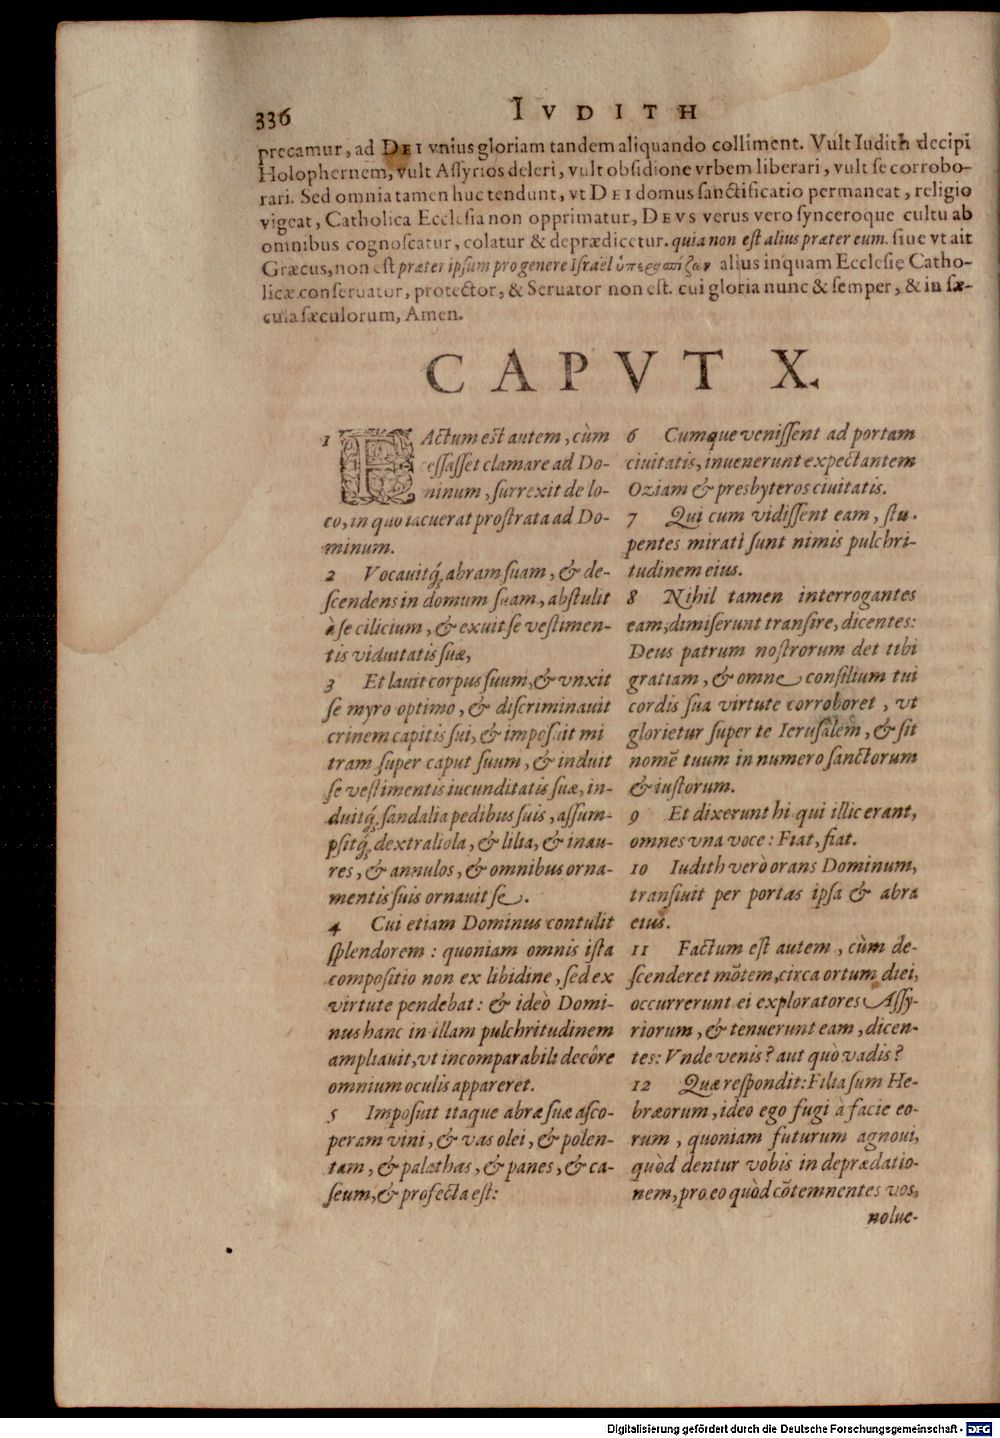 336 IVDITH
precamur, ad DEI vnius gloriam tandem aliquando colliment. Vult Iudith decipi
Holophernem, vult Aſſyrios deleri, vult obſidione vrbem liberari, vult ſe corrobo-
rari. Sed omnia tamen huc tendunt, vt DEI domus ſanctificatio permaneat, religio
vigeat, Catholica Eccleſia non opprimatur, DEVS verus vero ſynceroque cultu ab
omnibus cognoſcatur, colatur & deprædicetur. quia non eſt alius præter eum. ſiue vt ait
Græcus, non eſt præter ipſum pro genere Iſraël ὑπερασπίζων alius inquam Eccleſię Catho-
licæ conſeruator, protector, & Seruator non eſt. cui gloria nunc & ſemper, & in ſæ-
cula ſæculorum, Amen.
CAPVT X.
1 FActum est autem, cùm
ceſſaſſet clamare ad Do-
minum, ſurrexit de lo-
co, in quo iacuerat proſtrata ad Do-
minum.
2 Vocauitq́; abram ſuam, & de-
ſcendens in domum ſuam, abſtulit
à ſe cilicium, & exuit ſe veſtimen-
tis viduitatis ſuæ,
3 Et lauit corpus ſuum, & vnxit
ſe myro optimo, & diſcriminauit
crinem capitis ſui, & impoſuit mi
tram ſuper caput ſuum, & induit
ſe veſtimentis iucunditatis ſuæ, in-
duitq́; ſandalia pedibus ſuis, aſſum-
pſitq́; dextraliola, & lilia, & inau-
res, & annulos, & omnibus orna-
mentis ſuis ornauit ſe.
4 Cui etiam Dominus contulit
ſplendorem: quoniam omnis iſta
compoſitio non ex libidine, ſed ex
virtute pendebat: & ideò Domi-
nus hanc in illam pulchritudinem
ampliauit, vt incomparabili decôre
omnium oculis appareret.
5 Impoſuit itaque abræ ſuæ aſco-
peram vini, & vas olei, & polen-
tam, & palathas, & panes, & ca-
ſeum, & profecta eſt:
6 Cumque veniſſent ad portam
ciuitatis, inuenerunt expectantem
Oziam & presbyteros ciuitatis.
7 Qui cum vidiſſent eam, ſtu-
pentes mirati ſunt nimis pulchri-
tudinem eius.
8 Nihil tamen interrogantes
eam, dimiſerunt tranſire, dicentes:
Deus patrum noſtrorum det tibi
gratiam, & omne conſilium tui
cordis ſua virtute corroboret, vt
glorietur ſuper te Ieruſalem, & ſit
nomē tuum in numero ſanctorum
& iuſtorum.
9 Et dixerunt hi qui illic erant,
omnes vna voce: Fiat, fiat.
10 Iudith verò orans Dominum,
tranſiuit per portas ipſa & abra
eius.
11 Factum eſt autem, cùm de-
ſcenderet mōtem, circa ortum diei,
occurrerunt ei exploratores Aſſy-
riorum, & tenuerunt eam, dicen-
tes: Vnde venis? aut quò vadis?
12 Quæ reſpondit: Filia ſum He-
bræorum, ideo ego fugi à facie eo-
rum, quoniam futurum agnoui,
quòd dentur vobis in deprædatio-
nem, pro eo quòd cōtemnentes vos,
nolue-
Digitalisierung gefördert durch die Deutsche Forschungsgemeinschaft - DFG